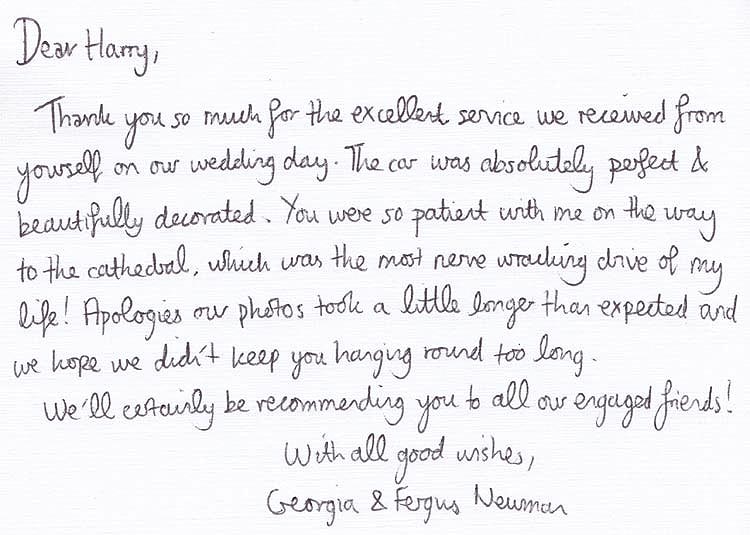 Dear Harry,
Thank you so much for the excellent service we received from
yourself on our wedding day. The car was absolutely perfect &
beautifully decorated. You were so patient with me on the way
to the cathedral, which was the most nerve wracking drive of my
life! Apologies our photos took a little longer than expected and
we hope we didn't keep you hanging round too long.
We'll certainly be recommending you to all our engaged friends!
With all good wishes,
Georgia & Fergus Newman